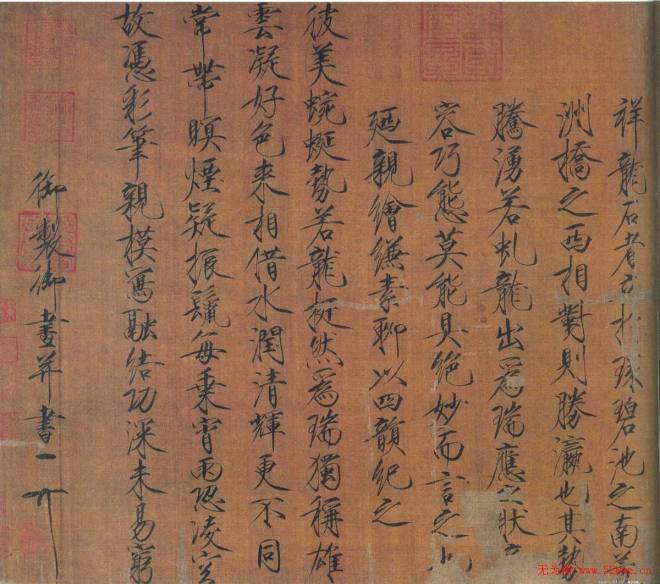 祥龍石者立於環碧池之南芳
洲橋之西相對則勝瀛也其勢
騰湧若虬龍出為瑞應之狀奇
容巧態莫能具絕妙而言之也
廼親繪縑素聊以四韻紀之
彼美蜿蜒勢若龍挺然為瑞獨稱雄
雲凝好色来相借水潤清輝更不同
常帶暝煙疑振鬣每乗宵雨恐凌空
故憑彩筆親模寫融結功深未易窮
御製御畫并書